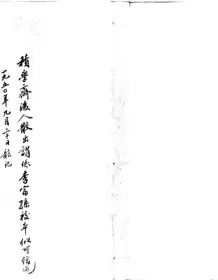 積學齋後人散出謂係李富孫校本似可信也
一九五〇年九月二十日龍記